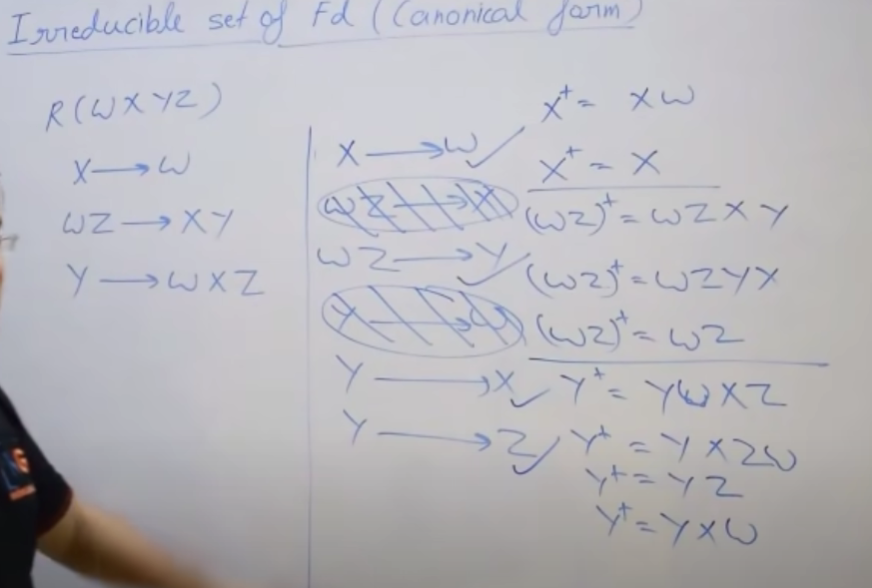 Irreducible set of Fd (Canonical form)
R(WXYZ)
X → W
WZ → XY
Y → WXZ
X → W ✓
WZ → X
WZ → Y ✓
Y → W
Y → X ✓
Y → Z ✓
X⁺ = XW
X⁺ = X
(WZ)⁺ = WZXY
(WZ)⁺ = WZYX
(WZ)⁺ = WZ
Y⁺ = YWXZ
Y⁺ = YXZW
Y⁺ = YZ
Y⁺ = YXW